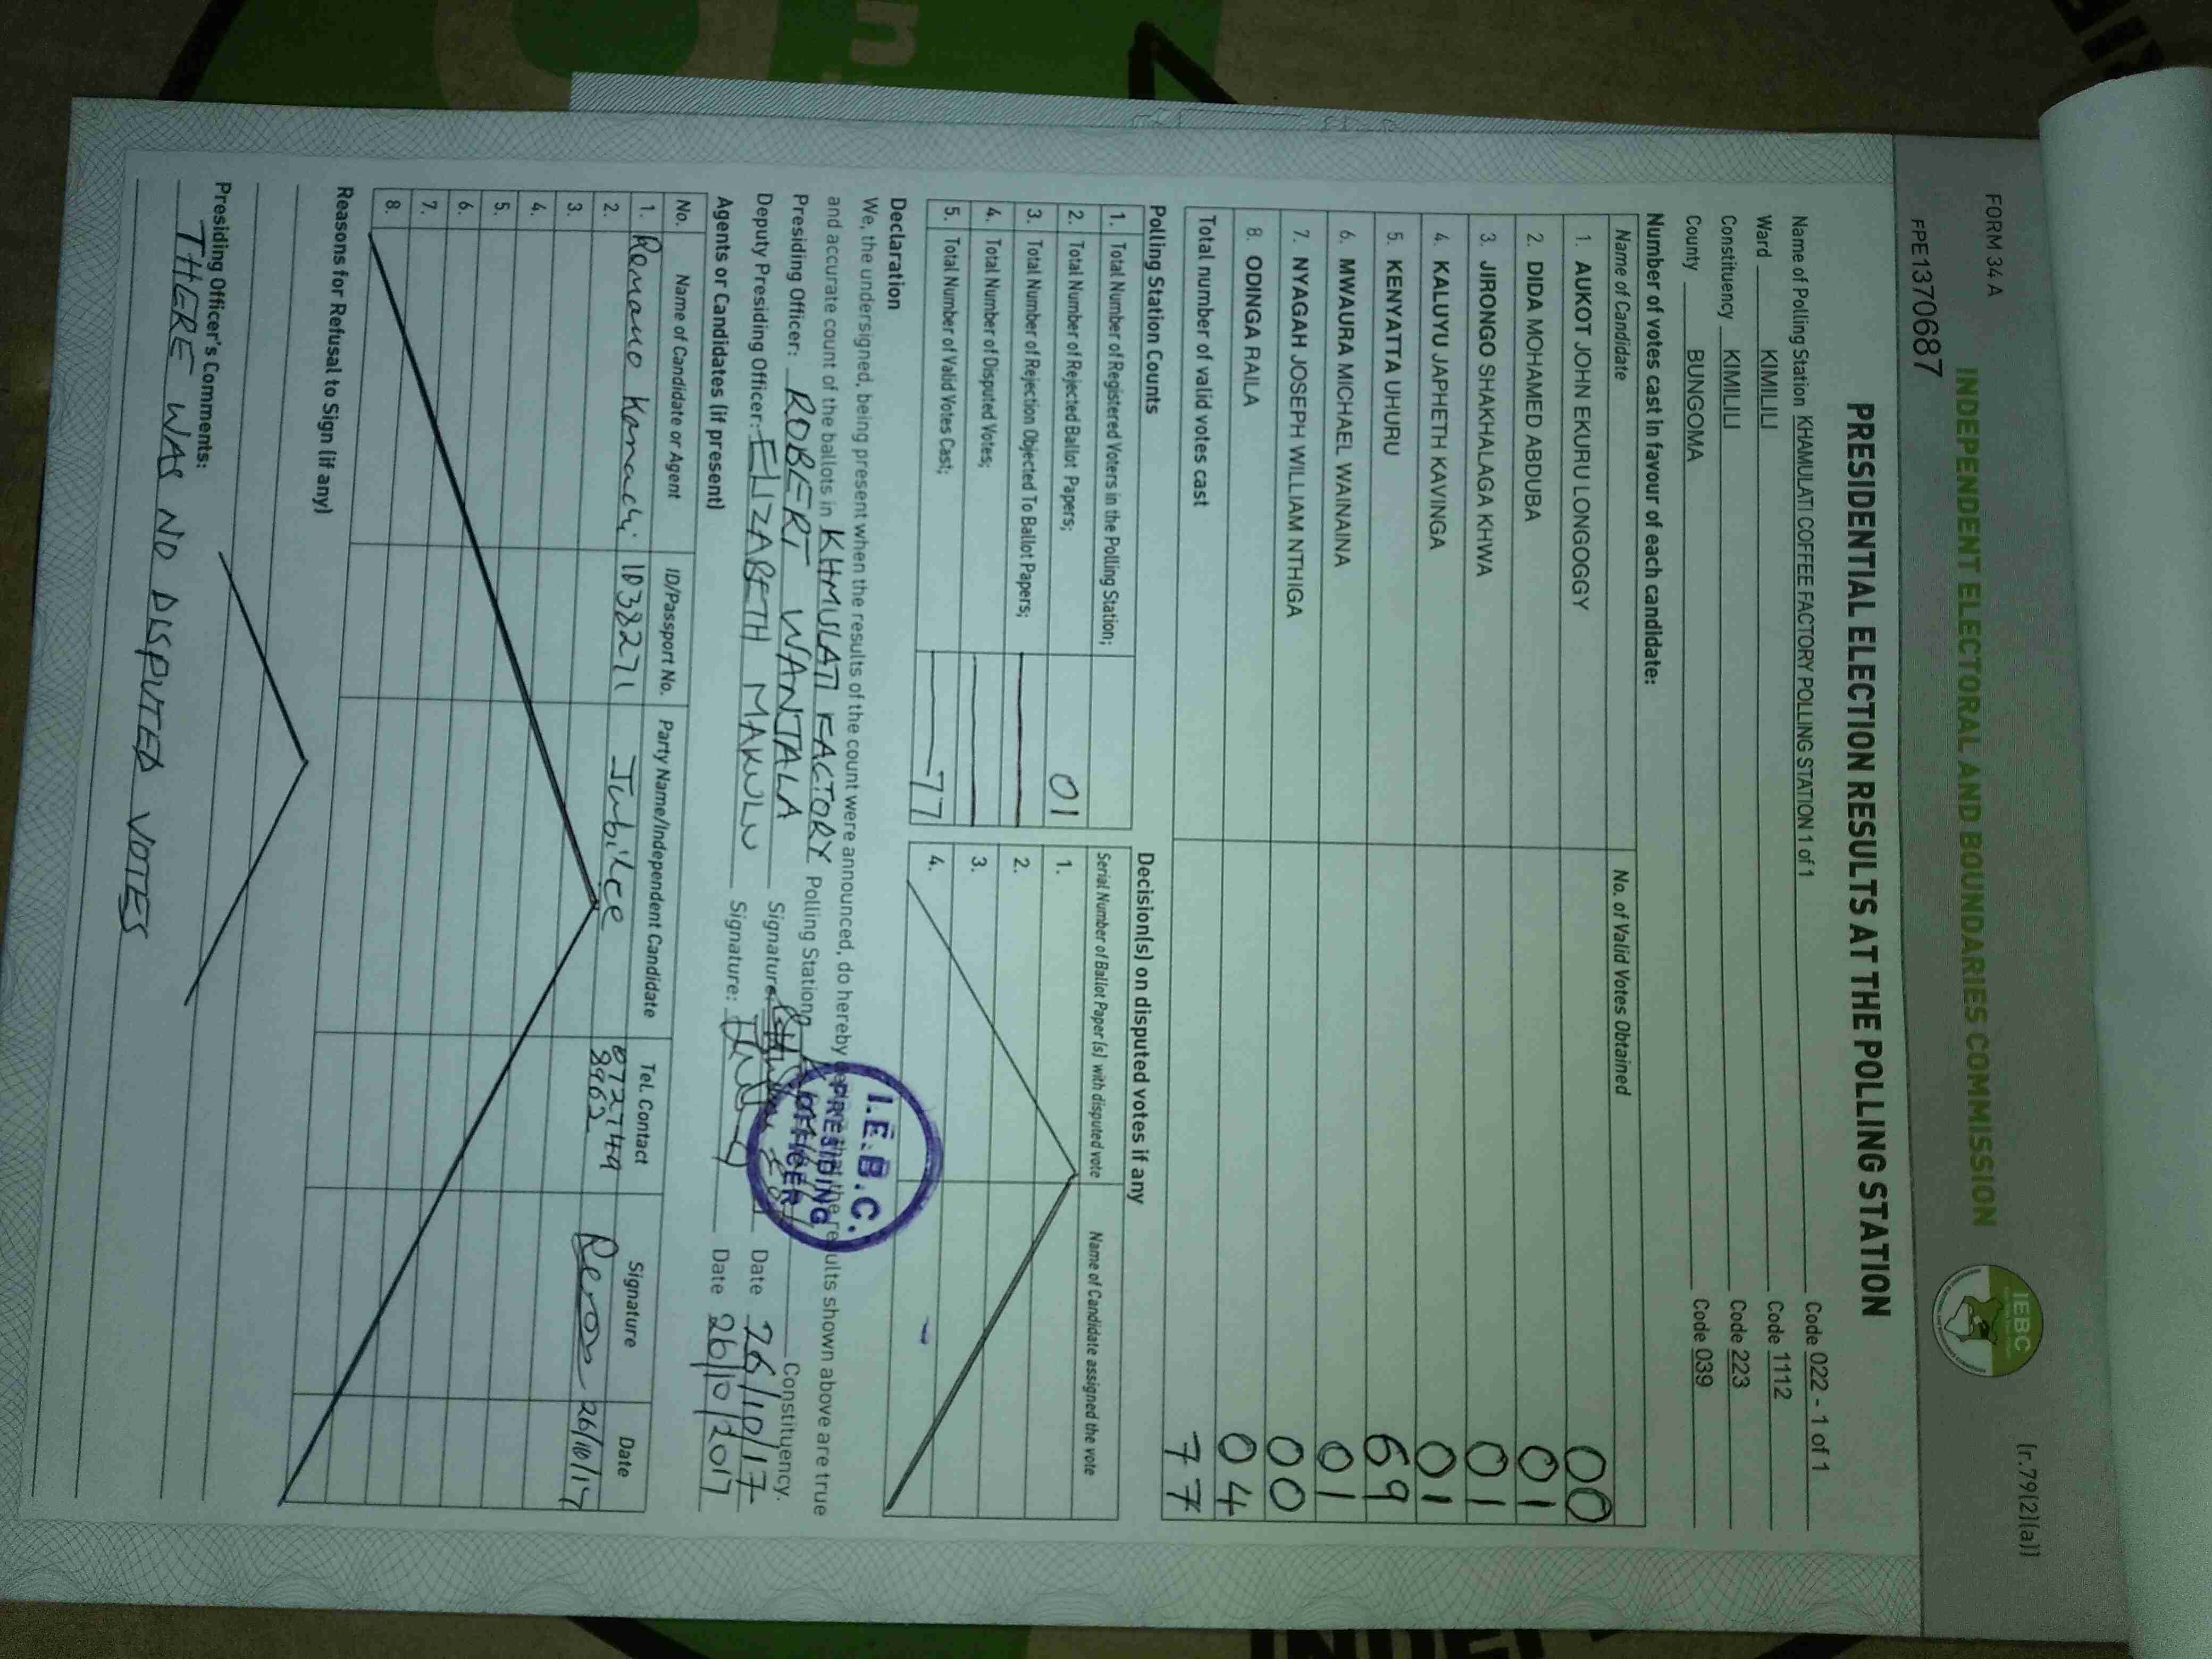 FORM 34 A
[r.79(2)(a)]
FPE1370687
INDEPENDENT ELECTORAL AND BOUNDARIES COMMISSION
IEBC
PRESIDENTIAL ELECTION RESULTS AT THE POLLING STATION
Name of Polling Station KHAMULATI COFFEE FACTORY POLLING STATION 1 of 1 Code 022 - 1 of 1
Ward KIMILILI Code 1112
Constituency KIMILILI Code 223
County BUNGOMA Code 039
Number of votes cast in favour of each candidate:
Name of Candidate No. of Valid Votes Obtained
1. AUKOT JOHN EKURU LONGOGGY 00
2. DIDA MOHAMED ABDUBA 01
3. JIRONGO SHAKHALAGA KHWA 01
4. KALUYU JAPHETH KAVINGA 01
5. KENYATTA UHURU 69
6. MWAURA MICHAEL WAINAINA 01
7. NYAGAH JOSEPH WILLIAM NTHIGA 00
8. ODINGA RAILA 04
Total number of valid votes cast 77
Polling Station Counts
1. Total Number of Registered Voters in the Polling Station;
2. Total Number of Rejected Ballot Papers; 01
3. Total Number of Rejection Objected To Ballot Papers;
4. Total Number of Disputed Votes;
5. Total Number of Valid Votes Cast; 77
Decision(s) on disputed votes if any
Serial Number of Ballot Paper (s) with disputed vote Name of Candidate assigned the vote
1.
2.
3.
4.
Declaration
We, the undersigned, being present when the results of the count were announced, do hereby declare that the results shown above are true
and accurate count of the ballots in KHMULATI FACTORY Polling Station, Constituency.
Presiding Officer: ROBERT WANJALA Signature: Date 26/10/17
Deputy Presiding Officer: ELIZABETH MAKULU Signature: Date 26/10/2017
I.E.B.C.
PRESIDING
OFFICER
Agents or Candidates (if present)
No. Name of Candidate or Agent ID/Passport No. Party Name/Independent Candidate Tel. Contact Signature Date
1. Kamachi ID 33271 Jubilee 0727449 8962 26/10/17
2.
3.
4.
5.
6.
7.
8.
Reasons for Refusal to Sign (if any)
Presiding Officer's Comments:
THERE WAS NO DISPUTED VOTES